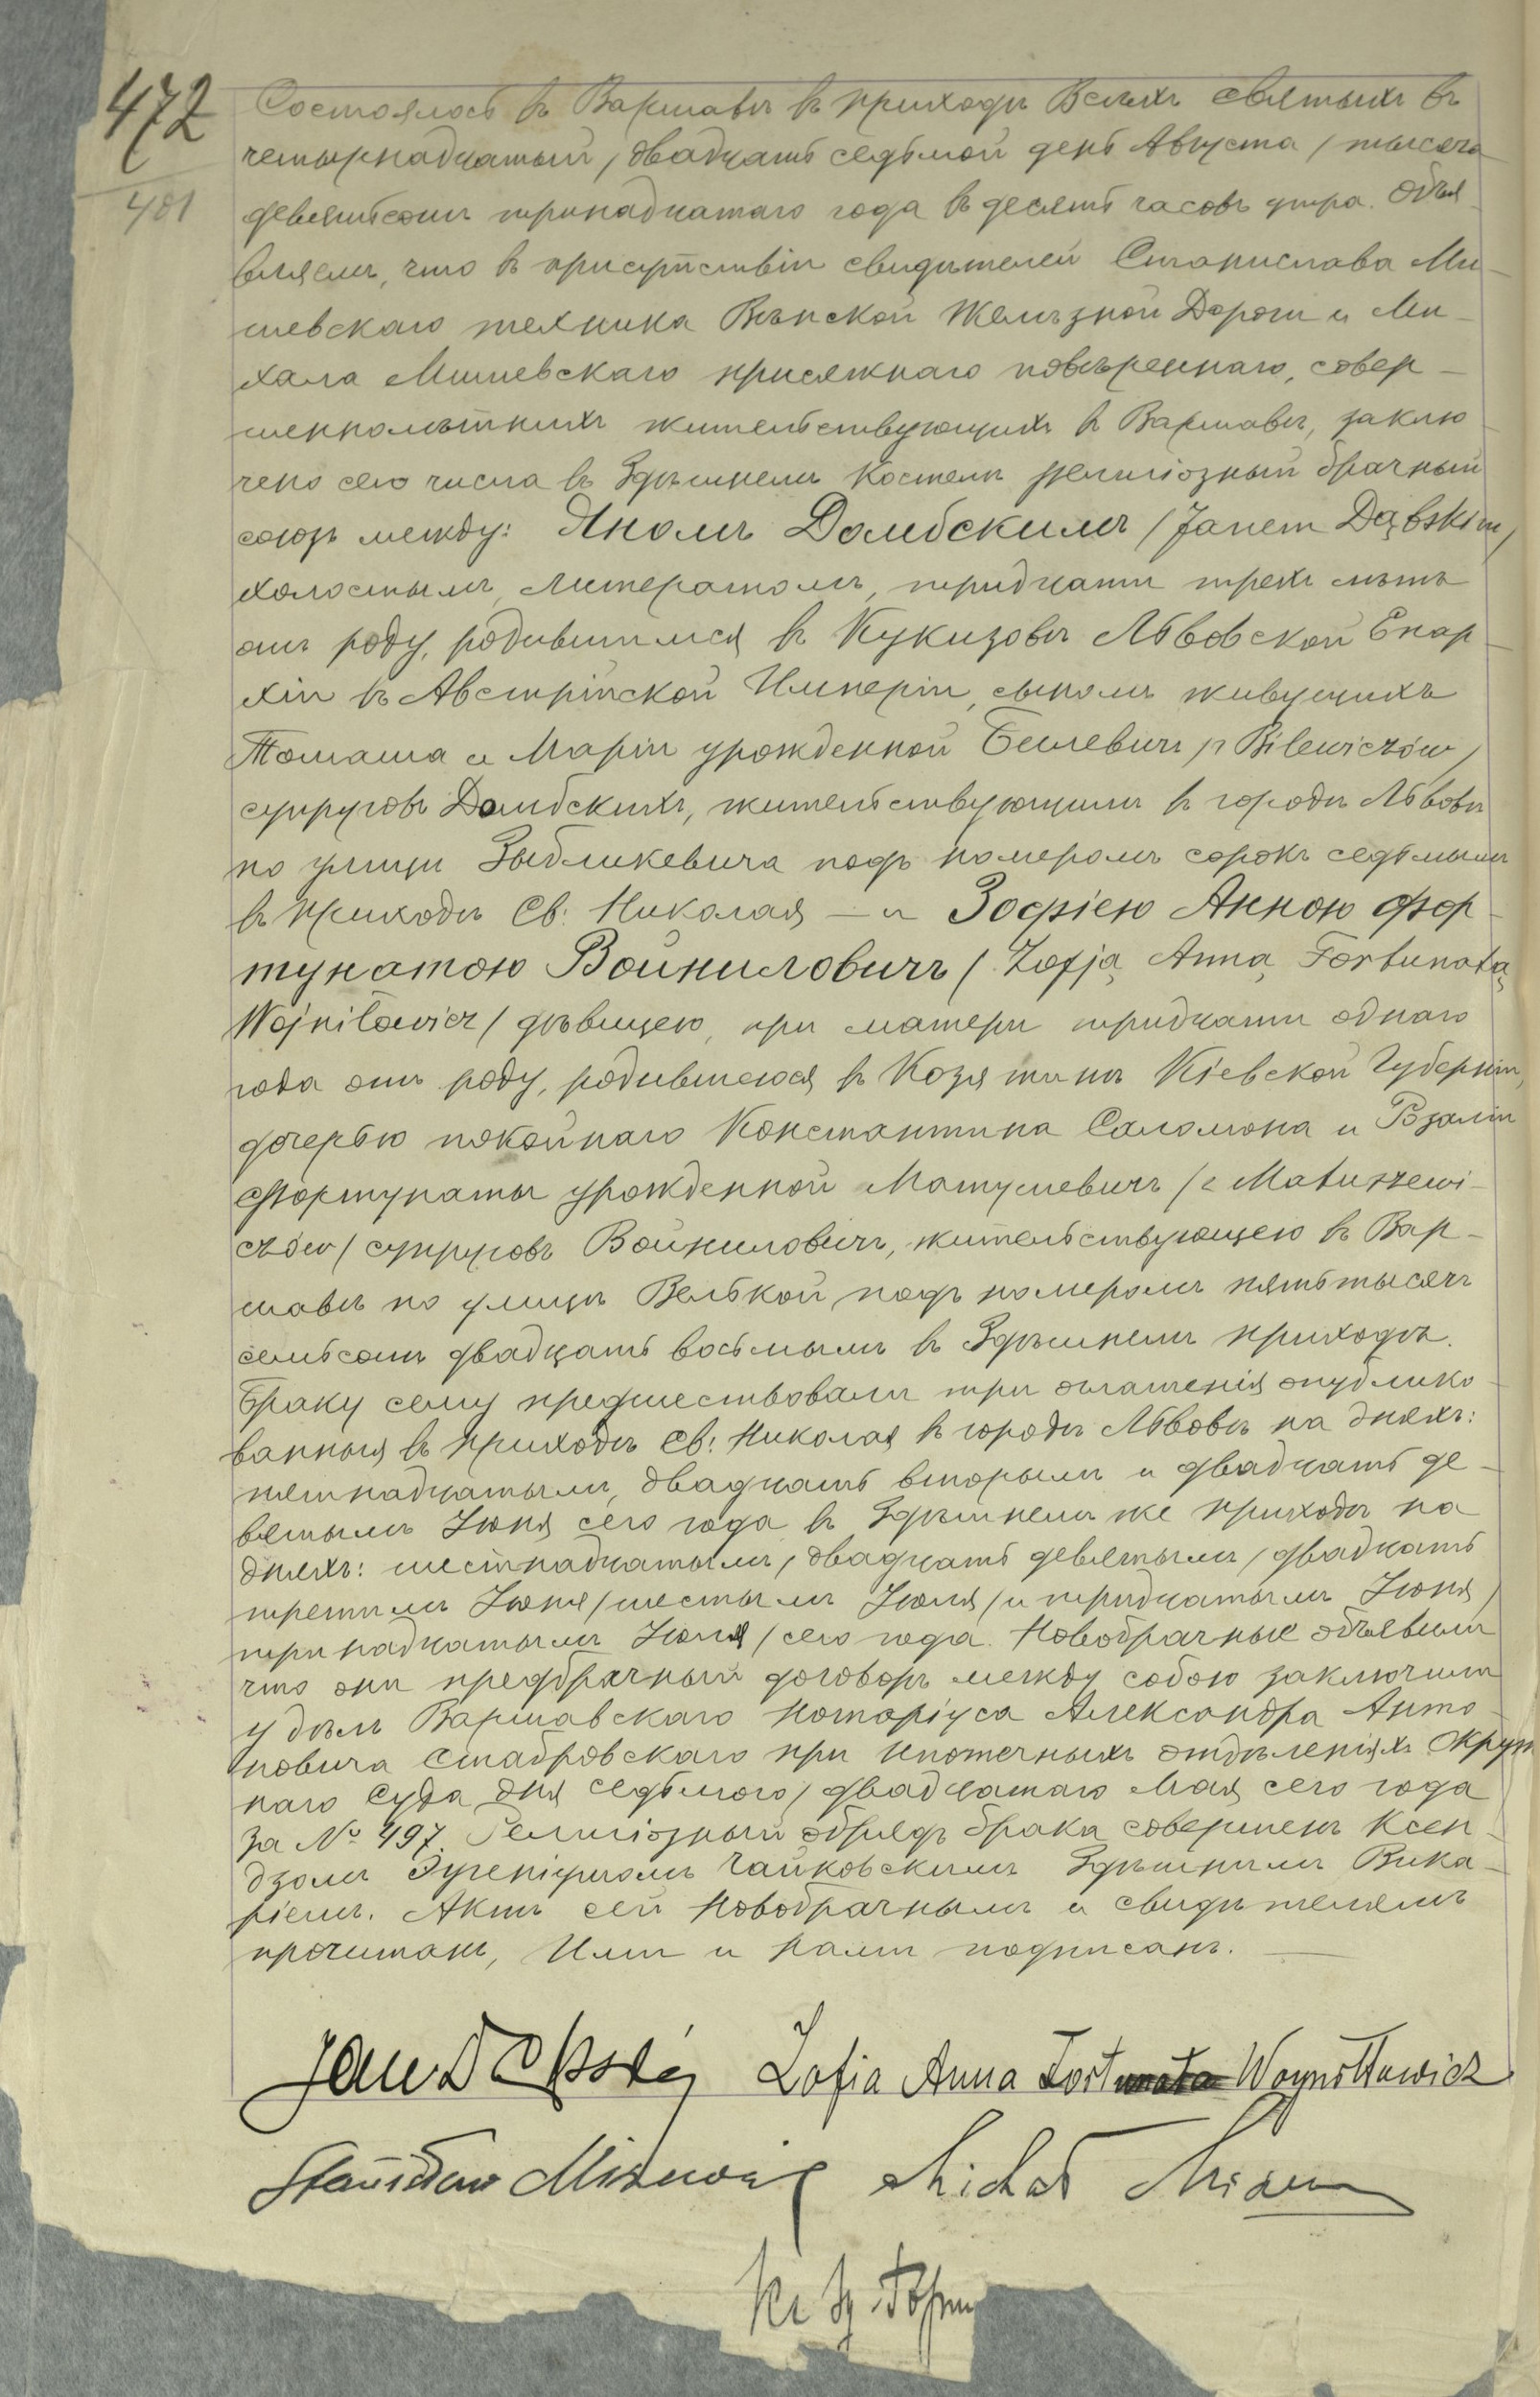 472
481
Состоялось въ Варшавѣ въ приходѣ Всѣхъ святыхъ въ
четырнадцатый / двадцать седьмой день Августа / тысяча
девятьсотъ тринадцатаго года въ десять часовъ утра. Объя-
вляемъ, что въ присутствіи свидѣтелей Станислава Ми-
шевскаго техника Вѣнской Желѣзной Дороги и Ми-
хала Мишевскаго присяжнаго повѣреннаго, совер-
шеннолѣтнихъ жительствующихъ въ Варшавѣ, заклю-
чено сего числа въ Здѣшнемъ Костелѣ религіозный брачный
союзъ между: Яномъ Домбскимъ / Janem Dąbskim /
холостымъ, литератомъ, тридцати трехъ лѣтъ
отъ роду, родившимся въ Кукизовѣ Львовской Епар-
хіи въ Австрійской Имперіи, сыномъ живущихъ
Томаша и Маріи урожденной Билевичъ / z Bilewiczów /
супруговъ Домбскихъ, жительствующимъ въ городѣ Львовѣ
по улицы Зыбликевича подъ номеромъ сорокъ седьмымъ
въ приходѣ Св: Николая — и Зофіею Анною Фор-
тунатою Войниловичъ / Zofją Anną Fortunatą
Wojniłowicz / дѣвицею, при матери тридцати одного
года отъ роду, родившеюся въ Козятинѣ Кіевской Губерніи,
дочерью покойнаго Константина Саломона и Розаліи
Фортунаты урожденной Матушевичъ / z Matuszewi-
czów / супруговъ Войниловичъ, жительствующею въ Вар-
шавѣ по улицѣ Велькой подъ номеромъ пять тысячъ
семьсотъ двадцать восьмымъ въ Здѣшнемъ приходѣ.
Браку сему предшествовали три оглашенія опублико-
ванныя въ приходѣ Св: Николая въ городѣ Львовѣ на дняхъ:
пятнадцатымъ, двадцать вторымъ и двадцать де-
вятымъ Іюня сего года въ Здѣшнемъ же приходѣ на
дняхъ: шестнадцатымъ / двадцать девятымъ / двадцать
третьимъ Іюня / шестымъ Іюля / и тридцатымъ Іюня /
тринадцатымъ Іюля / сего года. Новобрачные объявили
что они предбрачный договоръ между собою заключили
у дѣлъ Варшавскаго Нотаріуса Александра Анто-
новича Стабровскаго при Ипотечныхъ отдѣленіяхъ Окруж
наго Суда дня седьмого / двадцатаго Мая сего года
за № 497. Религіозный обрядъ брака совершенъ Ксен-
дзомъ Чайковскимъ Здѣшнимъ Вика-
ріемъ. Актъ сей Новобрачнымъ и свидѣтелямъ
прочитанъ, Ими и Нами подписанъ. —
Jan Dąbski Zofia Anna Fortunata Woyniłłowicz
Stanisław Miszewski Michał